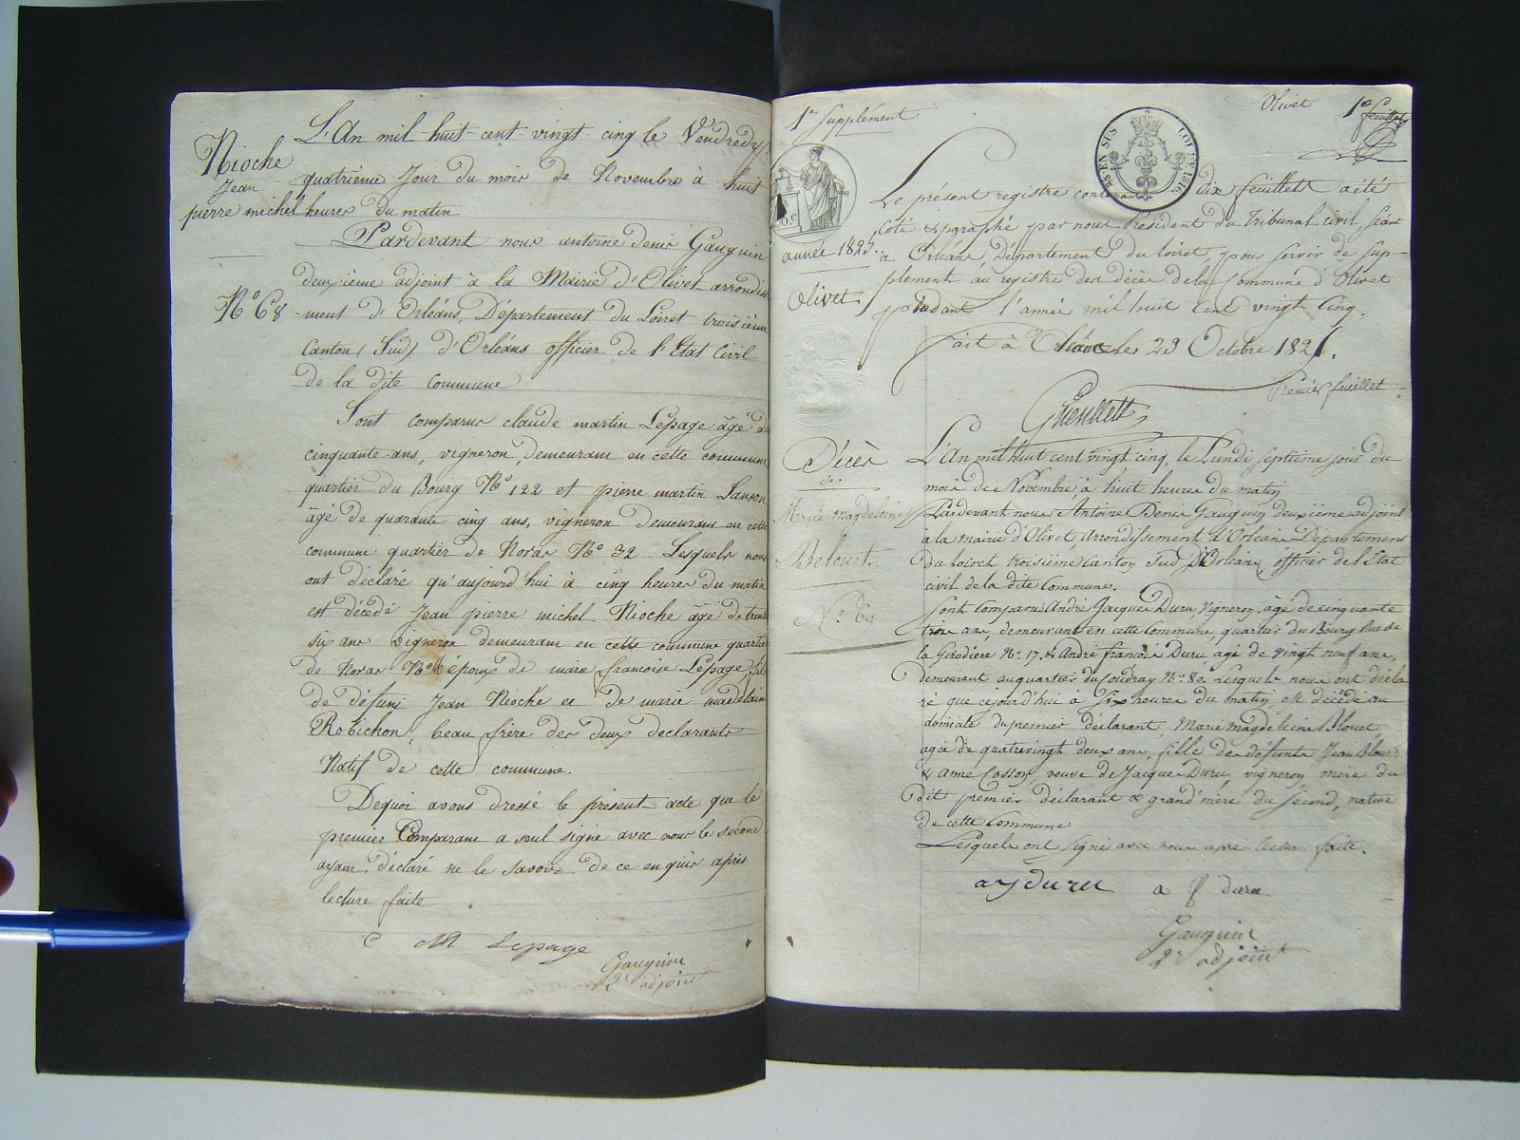 Nioche
Jean
pierre michel
N° 68
L'An mil huit-cent-vingt-cinq le Vendredy
quatrieme Jour du mois de Novembre à huit
heures du matin
Pardevant nous antoine denis Gauguin
deuxième adjoint à la Mairie d'Olivet arrondis
-ment d'Orléans, Département du Loiret troisième
Canton (Sud) d'Orléans officier de l'Etat Civil
de la dite commune
Sont comparus claude martin Lepage âgé de
cinquante-ans, vigneron, demeurant en cette commune
quartier du Bourg N° 122 et pierre martin Sanson
âgé de quarante cinq ans, vigneron demeurant en cette
commune quartier de Noras N° 32 Lesquels nous
ont déclaré qu'aujourd'hui à cinq heures du matin
est décédé Jean pierre michel Nioche âgé de trente
six ans vigneron demeurant en cette commune quartier
de Noras N° époux de marie françoise Lepage, fils
de défunt Jean Nioche et de marie madelaine
Robichon, beau frère des deux declarants
Natif de cette commune.
Dequoi avons dressé le présent acte que le
premier Comparant a seul signé avec nous le second
ayant déclaré ne le savoir de ce enquis après
lecture faite
C M Lepage
Gauguin
2e adjoint
1er Supplément
Olivet 1er feuillet
année 1825.
Olivet
Le présent registre contenant dix feuillets a été
coté & paraphé par nous Président du Tribunal civil séant
à Orléans, Département du loiret, pour servir de sup-
plément au registre des décès de la Commune d'Olivet
pendant l'année mil huit Cent vingt cinq.
fait à Orléans les 29 Octobre 1825.
Premier feuillet
Décès
Marie Magdeleine
Blouet
N° 69
L'An mil huit cent vingt cinq, le Lundi septième jour du
mois de Novembre, à huit heures du matin
Pardevant nous Antoine Denis Gauguin deuxieme adjoint
à la mairie d'Olivet, Arrondissement d'Orléans Département
du loiret troisième Canton Sud d'Orléans officier de l'Etat
civil de la dite Commune.
Sont Comparu André Jacques Duru, Vigneron, âgé de cinquante
trois ans, demeurant en cette Commune, quartier du Bourg Rue de
la Gaudiere N° 17. & André françois Duru agé de vingt neuf ans,
demeurant au quartier du Coudray N° 80 Lesquels nous ont décla
ré que cejourd'hui à Six heures du matin est décédée au
domicile du premier déclarant, Marie Magdeleine Blouet
agée de quatrevingt deux ans, fille des défunts Jean Blouet
& anne Cosson, veuve de Jacques Duru, vigneron, mère du
dit premier déclarant & grand'mère du second, native
de cette Commune
Lesquels ont signé avec nous après lecture faite.
a j duru a f duru
Gauguin
2e adjoint